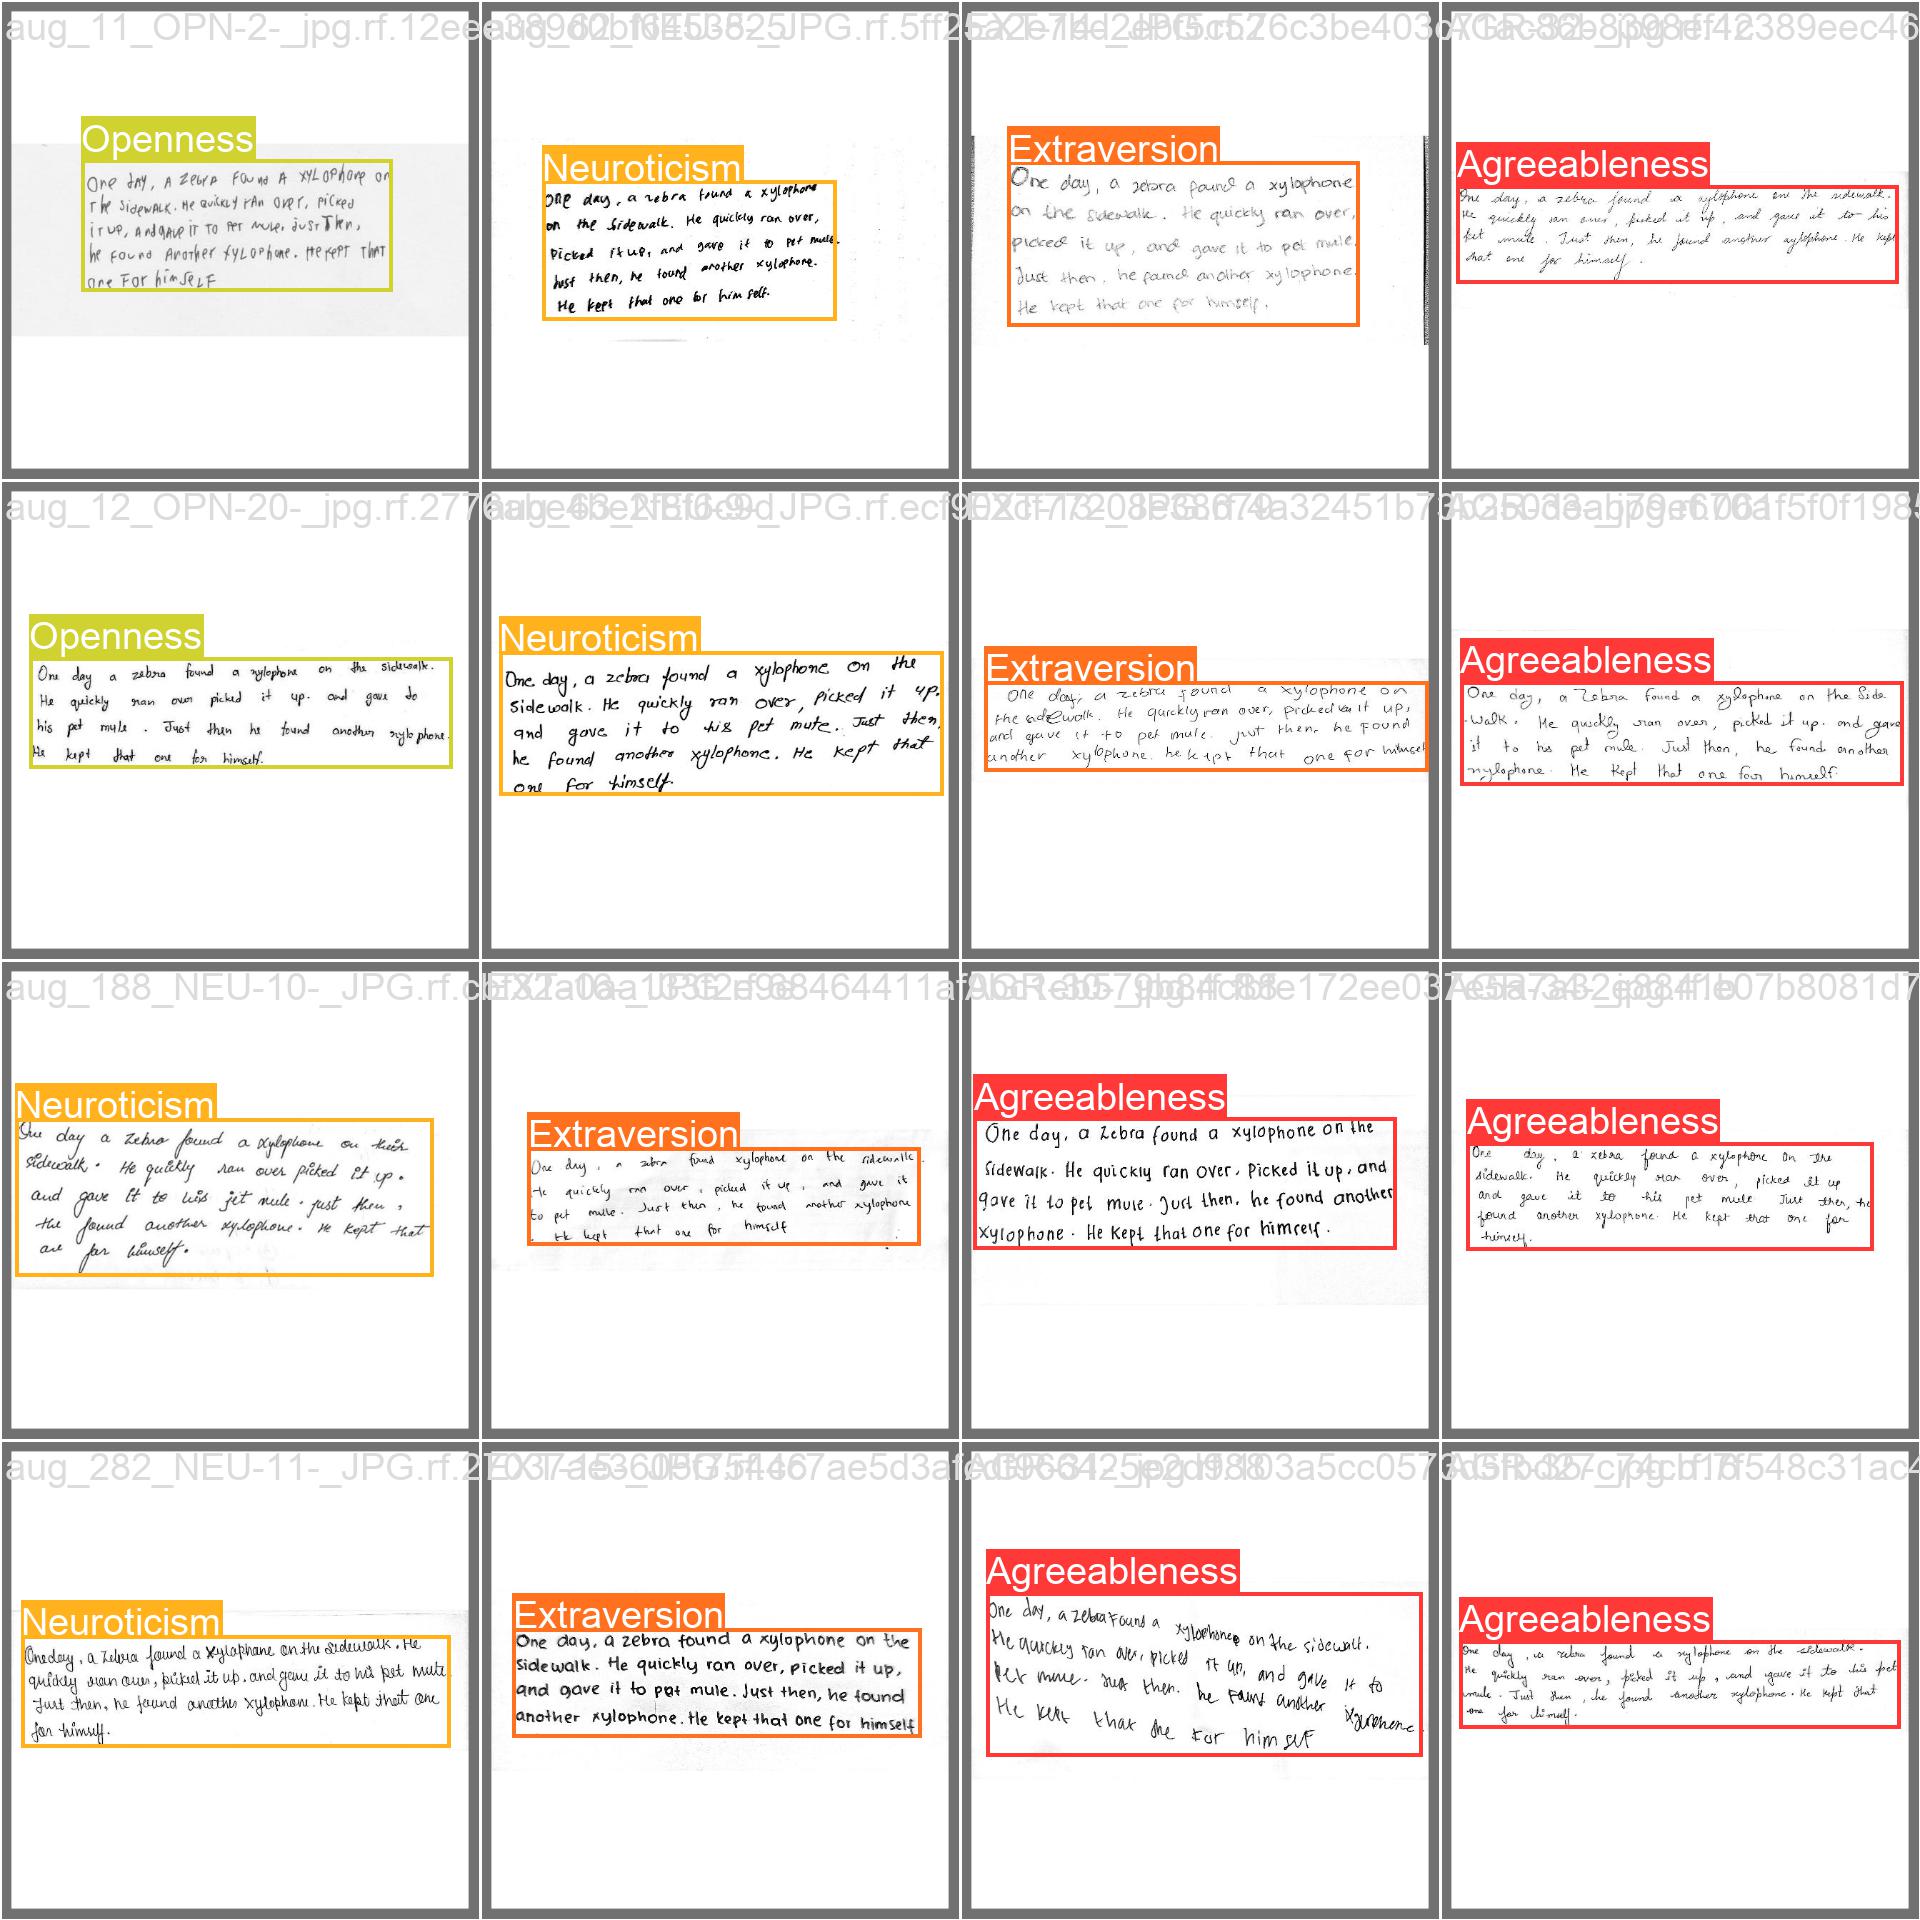 Openness
One dAY, A ZebrA Found A XYLOphone on
The SidewALK. He quickly rAn over, picked
it up, And gAve it To Per mule. Just Then,
he Found Another XYLOphone. He Kept THAT
one For himSeLF
Neuroticism
One day, a zebra found a xylophone
on the sidewalk. He quickly ran over,
Picked it up, and gave it to pet mule.
Just then, he found another xylophone.
He kept that one for him self.
Extraversion
One day, a zebra found a xylophone
on the sidewalk. He quickly ran over,
picked it up, and gave it to pet mule.
Just then, he found another xylophone.
He kept that one for himself.
Agreeableness
One day, a zebra found a xylophone on the sidewalk.
He quickly ran over, picked it up, and gave it to his
pet mule. Just then, he found another xylophone. He kept
that one for himself.
Openness
One day a zebra found a xylophone on the sidewalk.
He quickly ran over picked it up. and gave to
his pet mule. Just then he found another xylophone.
He kept that one for himself.
Neuroticism
One day, a zebra found a xylophone on the
sidewalk. He quickly ran over, picked it up.
and gave it to his pet mute. Just then,
he found another xylophone. He kept that
one for himself.
Extraversion
One day, a zebra found a xylophone on
the sidewalk. He quickly ran over, picked it up,
and gave it to pet mule. Just then, he found
another xylophone. he kept that one for himself
Agreeableness
One day, a Zebra found a xylophone on the Side
-walk. He quickly ran over, picked it up. and gave
it to his pet mule. Just then, he found another
xylophone. He kept that one for himself.
Neuroticism
One day a Zebra found a xylophone on their
sidewalk. He quickly ran over picked it up.
and gave it to his jet mule. just then,
the found another xylophone. He kept that
one for himself.
Extraversion
One day, a zebra found xylophone on the sidewalk.
He quickly ran over, picked it up, and gave it
to pet mule. Just then, he found another xylophone
. He kept that one for himself
Agreeableness
One day, a Zebra found a xylophone on the
sidewalk. He quickly ran over, Picked it up, and
gave it to pet mule. Just then, he found another
xylophone. He kept that one for himself.
Agreeableness
One day, a zebra found a xylophone on the
sidewalk. He quickly ran over, picked it up
and gave it to his pet mule Just then, he
found another xylophone. He kept that one for
himself.
Neuroticism
One day, a Zebra found a xylophone on the sidewalk. He
quickly ran over, picked it up, and gave it to his pet mute
Just then, he found another xylophone. He kept that one
for himself.
Extraversion
One day, a zebra found a xylophone on the
sidewalk. He quickly ran over, picked it up,
and gave it to pet mule. Just then, he found
another xylophone. He kept that one for himself
Agreeableness
One day, a zebra Found a xylophone on the sidewalk.
He quickly ran over, picked it up, and gave it to
Pet mule. Just then. he Found another
He kept that one For himself
Agreeableness
One day, a zebra found a xylophone on the sidewalk.
He quickly ran over, picked it up, and gave it to his pet
mule. Just then, he found another xylophone. He kept that
one for himself.